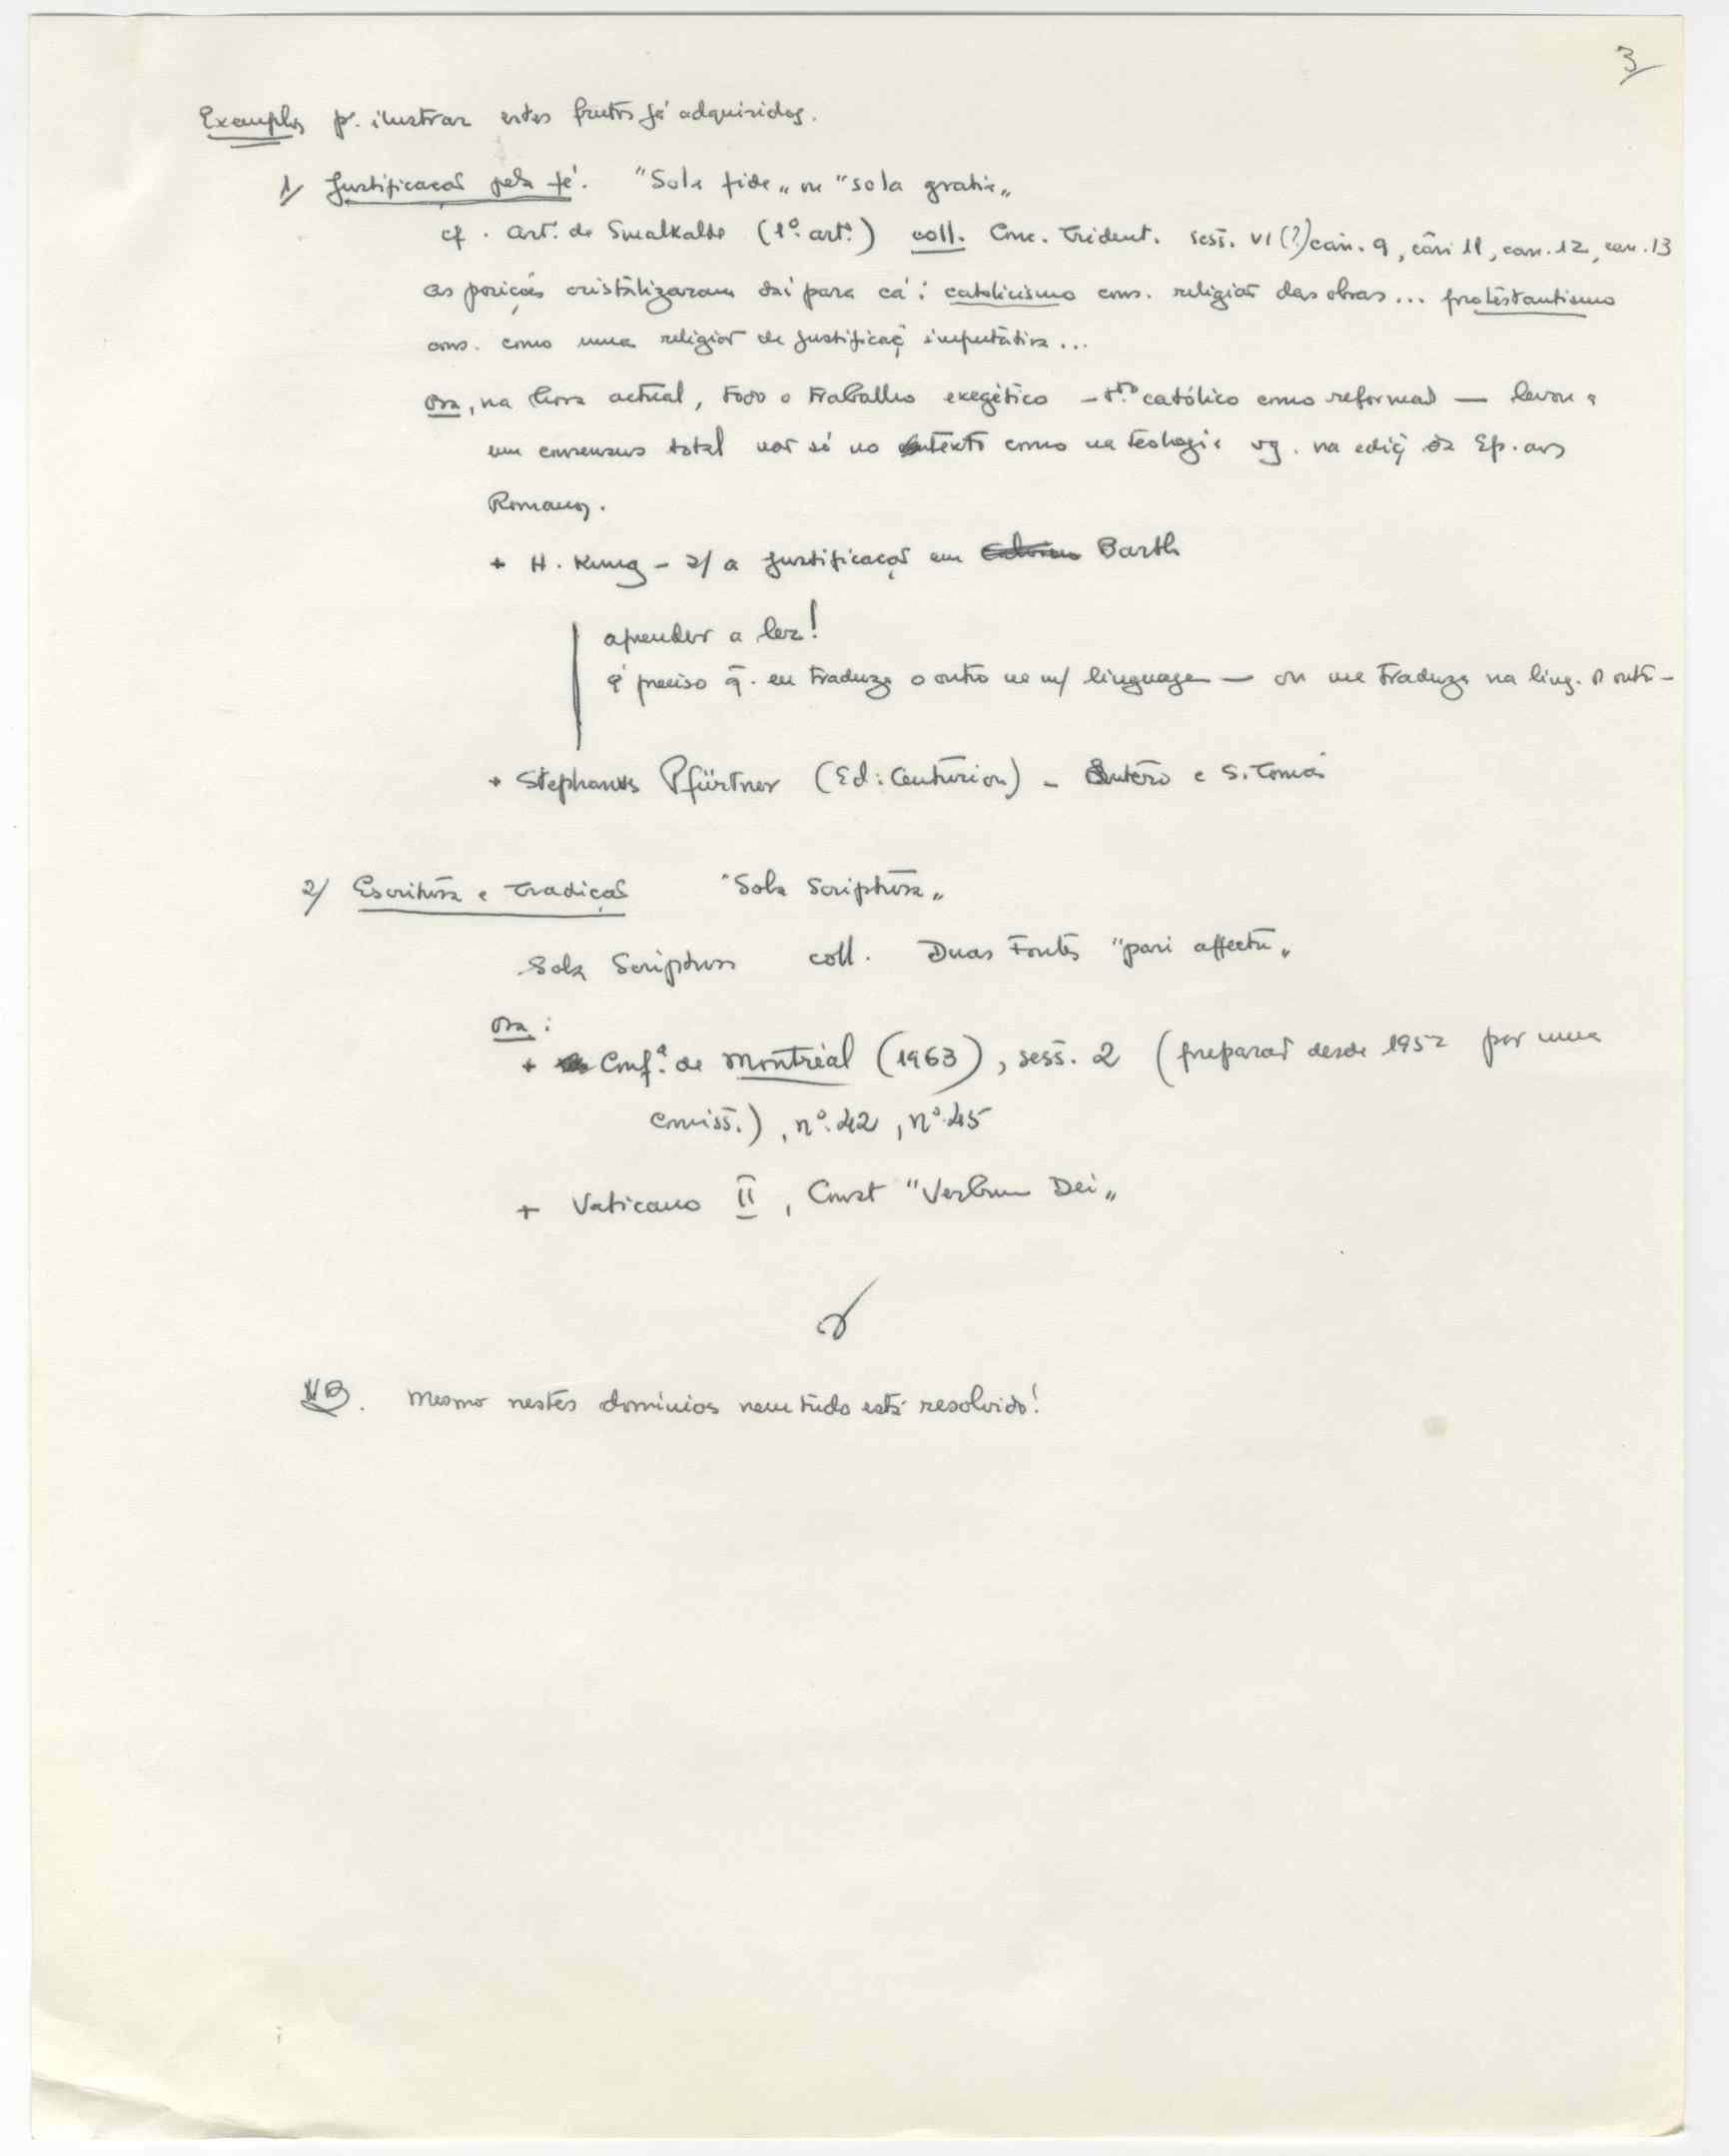 3
Exemplos p. ilustrar estes frutos já adquiridos.
1/ Justificação pela fé. "Sola fide" ou "sola gratia"
cf. art. de Smalkalde (1º. artº.) coll. Conc. Trident. sess. VI (?) can. 9, can 11, can. 12, can. 13
as posições cristalizaram daí para cá: catolicismo cons. religião das obras... protestantismo
cons. como uma religião de justificaç imputativa...
ora, na hora actual, todo o trabalho exegético – tº católico como reformado — levou a
um consensus total não só no texto como na teologia vg. na ediç da Ep. aos
Romanos.
+ H. Kung – s/ a justificação em Barth
aprender a ler!
é preciso q. eu traduza o outro na m/ linguagem — ou me traduza na ling. do outro
+ Stephanus Pfürtner (Ed: Centurion) – Lutero e S. Tomás
2/ Escritura e Tradição "Sola Scriptura"
Sola Scriptura coll. Duas Fontes "pari affectu"
ora:
+ Conf.ª de Montréal (1963), sess. 2 (preparado desde 1952 por uma
comiss.), nº. 42, nº. 45
+ Vaticano II, Const "Verbum Dei"
NB. Mesmo nestes domínios nem tudo está resolvido!